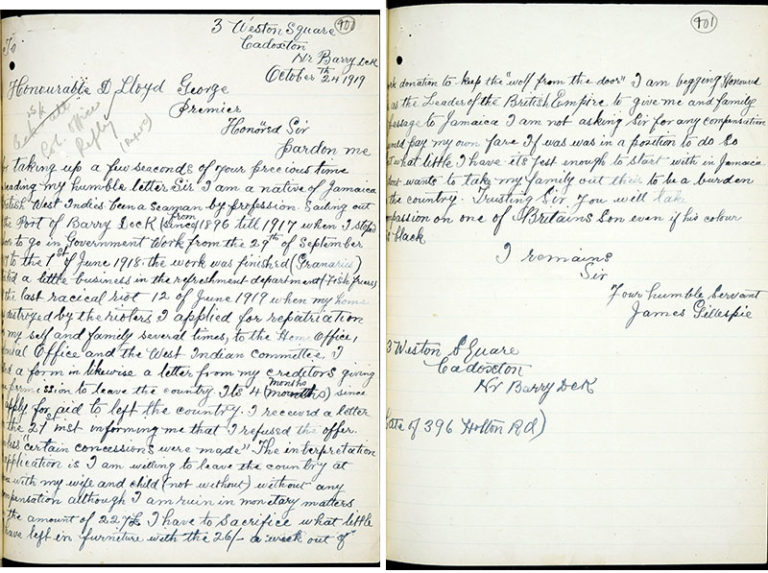 3 Weston Square
Cadoxton
Nr Barry Dck
October 24th 1919
901
To
Honourable D Lloyd George
Premier
Honored Sir
pardon me
taking up a few seaconds of your precious time
reading my humble letter Sir I am a native of Jamaica
British West Indies been a seaman by profession Sailing out
the Port of Barry Dock (from since) 1896 till 1917 when I stop'd
to go in Government Work from the 29th of September
to the 1st of June 1918. the work was finished (Granaries)
a little business in the refreshment department (Fish fried)
the last raceial riot 12 of June 1919 when my home
destroyed by the rioters I applied for repatriation
my self and family several times, to the Home Office,
Colonial Office and the West Indian Committee. I
a form in likewise a letter from my creditors giving
permission to leave the country Its 4 (months mounths) since
apply for aid to left the country. I received a letter
the 21st inst informing me that I refused the offer.
unless "certain concessions were made" The interpretation
application is I am willing to leave the country at
with my wife and child (not without) without any
compensation although I am ruin in monetary matters
the amount of 227£ I have to sacrifice what little
have left in furneture with the 26/- a week out of
901
donation to keep the "wolf from the door" I am begging Honored
as the Leader of the British Empire to give me and family
passage to Jamaica I am not asking Sir for any compensation
would pay my own fare If was was in a position to do so
what little I have its jest enough to start with in Jamaica
wants to take my family out their to be a burden
the country. Trusting Sir. You will take
compassion on one of Britains Son even if his colour
is black
I remains
Sir
Your humble Servant
James Gillespie
3 Weston Square
Cadoxton
Nr Barry Dck
(late of 396 Holton Rd)